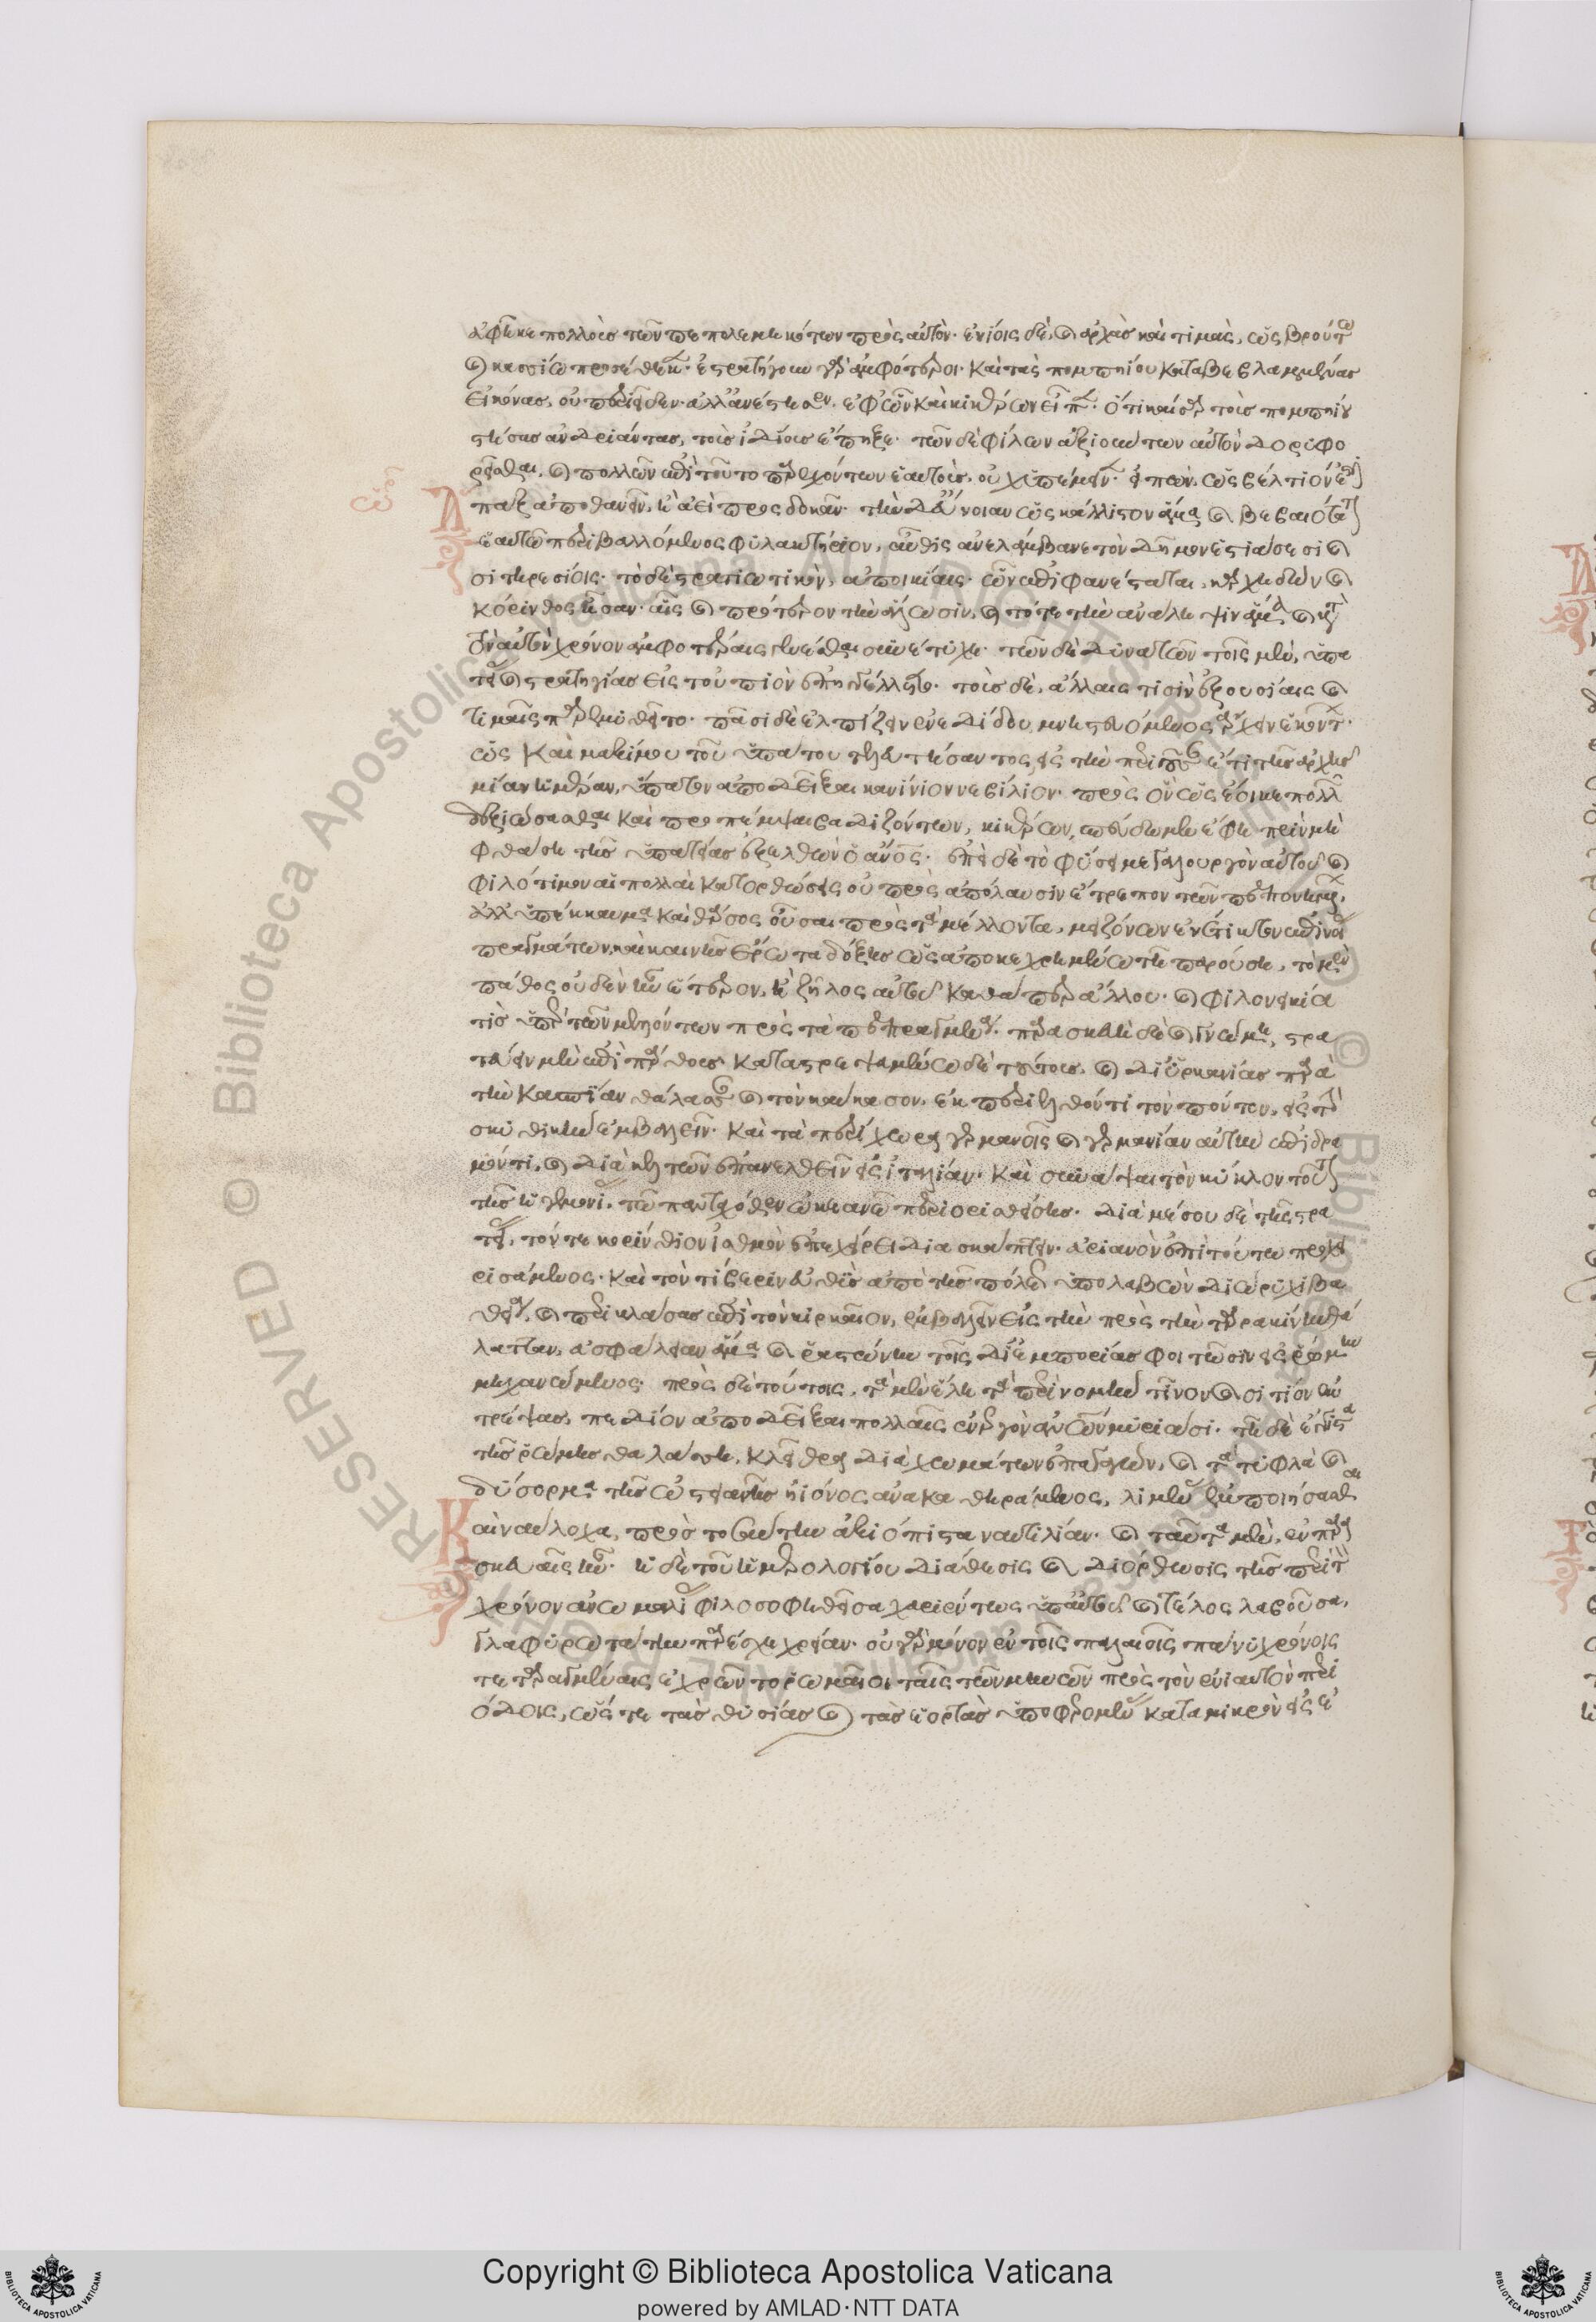 ἀφῆκε πολλοὺς τῶν πεπολεμηκότων πρὸς αὐτὸν· ἐνίοις δὲ, καὶ ἀρχὰς καὶ τιμὰς, ὡς βρούτω
καὶ κασσίω προσέθηκεν· ἐστρατήγουν γὰρ ἀμφότεροι· Καὶ τὰς πομπηίου καταβεβλημένας
εἰκόνας, οὐ περιεῖδεν· ἀλλ' ἀνέστησεν· ἐφ' ὧν καὶ κικέρων εἶπεν· ὅτι καῖσαρ τοὺς πομπηίου
στήσας ἀνδριάντας, τοὺς ἰδίους ἔπηξε· τῶν δὲ φίλων ἀξιούντων αὐτὸν δορυφο
ρεῖσθαι, καὶ πολλῶν ἐπὶ τοῦτο παρεχόντων ἑαυτοὺς, οὐχ ὑπέμεινεν· εἰπὼν, ὡς βέλτιόν ἐστιν
ἅπαξ ἀποθανεῖν, ἢ ἀεὶ προσδοκᾶν· τὴν δ' εὔνοιαν ὡς κάλλιστον ἅμα καὶ βεβαιότατον
ἑαυτῶ περιβαλλόμενος φυλακτήριον, αὖθις ἀνελάμβανε τὸν δῆμον ἑστιάσεσι καὶ
σιτηρεσίοις· τὸ δὲ στρατιωτικὸν, ἀποικίαις· ὧν ἐπιφανέσταται, καρχηδὼν καὶ
κόρινθος ἦσαν· αἷς καὶ πρότερον τὴν ἅλωσιν, καὶ τότε τὴν ἀνάληψιν ἅμα καὶ κατὰ
τὸν αὐτὸν χρόνον ἀμφοτέραις γενέσθαι συνέτυχε· τῶν δὲ δυνατῶν τοῖς μὲν, ὑπα
τείας καὶ στρατηγίας εἰς τοὐπιὸν ἐπηγγέλλετο· τοὺς δὲ, ἄλλαις τισὶν ἐξουσίαις καὶ
τιμαῖς παρεμυθεῖτο· πᾶσι δὲ ἐλπίζειν ἐνεδίδου μνηστευόμενος ἄρχειν ἑκόντων·
ὡς Καὶ μαξίμου τοῦ ὑπάτου τελευτήσαντος, εἰς τὴν περιοῦσαν ἔτι τῆς ἀρχῆς
μίαν ἡμέραν, ὕπατον ἀποδεῖξαι κανίνιον ῥεβίλιον· πρὸς ὃν ὡς ἔοικε πολλῶν
δεξιώσασθαι καὶ προπέμψαι βαδιζόντων, κικέρων, σπεύδωμεν ἔφη πρὶν μὴ
φθάση τῆς ὑπατείας ἐξελθὼν ὁ ἄνθρωπος· ἐπεὶ δὲ τὸ φύσει μεγαλουργὸν αὐτοῦ καὶ
φιλότιμον αἱ πολλαὶ κατορθώσεις οὐ πρὸς ἀπόλαυσιν ἔτρεπον τῶν πεπονημένων,
ἀλλ' ὑπέκκαυμα καὶ θάρσος οὖσαι πρὸς τὰ μέλλοντα, μειζόνων ἐνέτικτον ἐπινοίας
πραγμάτων, καὶ καινῆς ἔρωτα δόξης ὡς ἀποκεχρημένω τῆ παρούση, τὸ μὲν
πάθος οὐδὲν ἦν ἕτερον, ἢ ζῆλος αὐτοῦ καθάπερ ἄλλου· καὶ φιλονεικία
τὶς ὑπὲρ τῶν μελλόντων πρὸς τὰ πεπραγμένα· παρασκευὴ δὲ καὶ γνώμη, στρα
τεύειν μὲν ἐπὶ πάρθους· καταστρεψαμένω δὲ τούτους, καὶ δι' ὑρκανίας παρὰ
τὴν κασπίαν θάλασσαν καὶ τὸν καύκασον, ἐκπεριελθόντι τὸν πόντον, εἰς τὴν
σκυθικὴν ἐμβαλεῖν· Καὶ τὰ περίχωρα γερμανοῖς καὶ γερμανίαν αὐτὴν ἐπιδρα
μόντι, καὶ διὰ κελτῶν ἐπανελθεῖν εἰς ἰταλίαν· Καὶ συνάψαι τὸν κύκλον τοῦτον
τῆς ἡγεμονίας τῶ πανταχόθεν ὠκεανῶ περιορισθείσης· διὰ μέσου δὲ τῆς στρα
τείας, τόν τε κορίνθιον ἰσθμὸν ἐπεχείρει διασκάπτειν· ἀνιηνὸν ἐπὶ τούτω προχει
ρισάμενος· Καὶ τὸν τίβεριν εὐθὺς ἀπὸ τῆς πόλεως ὑπολαβὼν διώρυχι βα
θεία, καὶ περικλάσας ἐπὶ τὸ κιρκαῖον, ἐμβαλεῖν εἰς τὴν πρὸς τὴν ταρρακίνη θά
λατταν, ἀσφάλειαν ἅμα καὶ ῥαστώνην τοῖς δι' ἐμπορίας φοιτῶσιν εἰς ῥώμην
μηχανώμενος· πρὸς δὲ τούτοις, τὰ μὲν ἕλη τὰ περὶ νομεντῖνον καὶ σιτίον ἐκ
τρέψας, πεδίον ἀποδεῖξαι πολλαῖς ἐνεργὸν ἀνθρώπων μυριάσι· τῆ δὲ ἔγγιστα
τῆς ῥώμης θαλάσση, κλεῖθρα διὰ χωμάτων ἐπαγαγὼν, καὶ τὰ τυφλὰ καὶ
δύσορμα τῆς ὠστιανῆς ἠιόνος ἀνακαθηράμενος, λιμένας ἐμποιήσασθαι
Καὶ ναύλοχα, πρὸς τοσαύτην ἀξιόπιστα ναυτιλίαν· καὶ ταῦτα μὲν, ἐν παρα
σκευαῖς ἦν· ἡ δὲ τοῦ ἡμερολογίου διάθεσις καὶ διόρθωσις τῆς περὶ τὸν
χρόνον ἀνωμαλίας φιλοσοφηθεῖσα χαριέντως ὑπ' αὐτοῦ καὶ τέλος λαβοῦσα,
γλαφυρωτάτην παρέσχε χρείαν· οὐ γὰρ μόνον ἐν τοῖς παλαιοῖς πάνυ χρόνοις
τεταραγμέναις ἐχρῶντο ῥωμαῖοι ταῖς τῶν μηνῶν πρὸς τὸν ἐνιαυτὸν περι
όδοις, ὥστε τὰς θυσίας καὶ τὰς ἑορτὰς ὑποφερομένας κατὰ μικρὸν εἰς ἐ
Copyright © Biblioteca Apostolica Vaticana
powered by AMLAD·NTT DATA